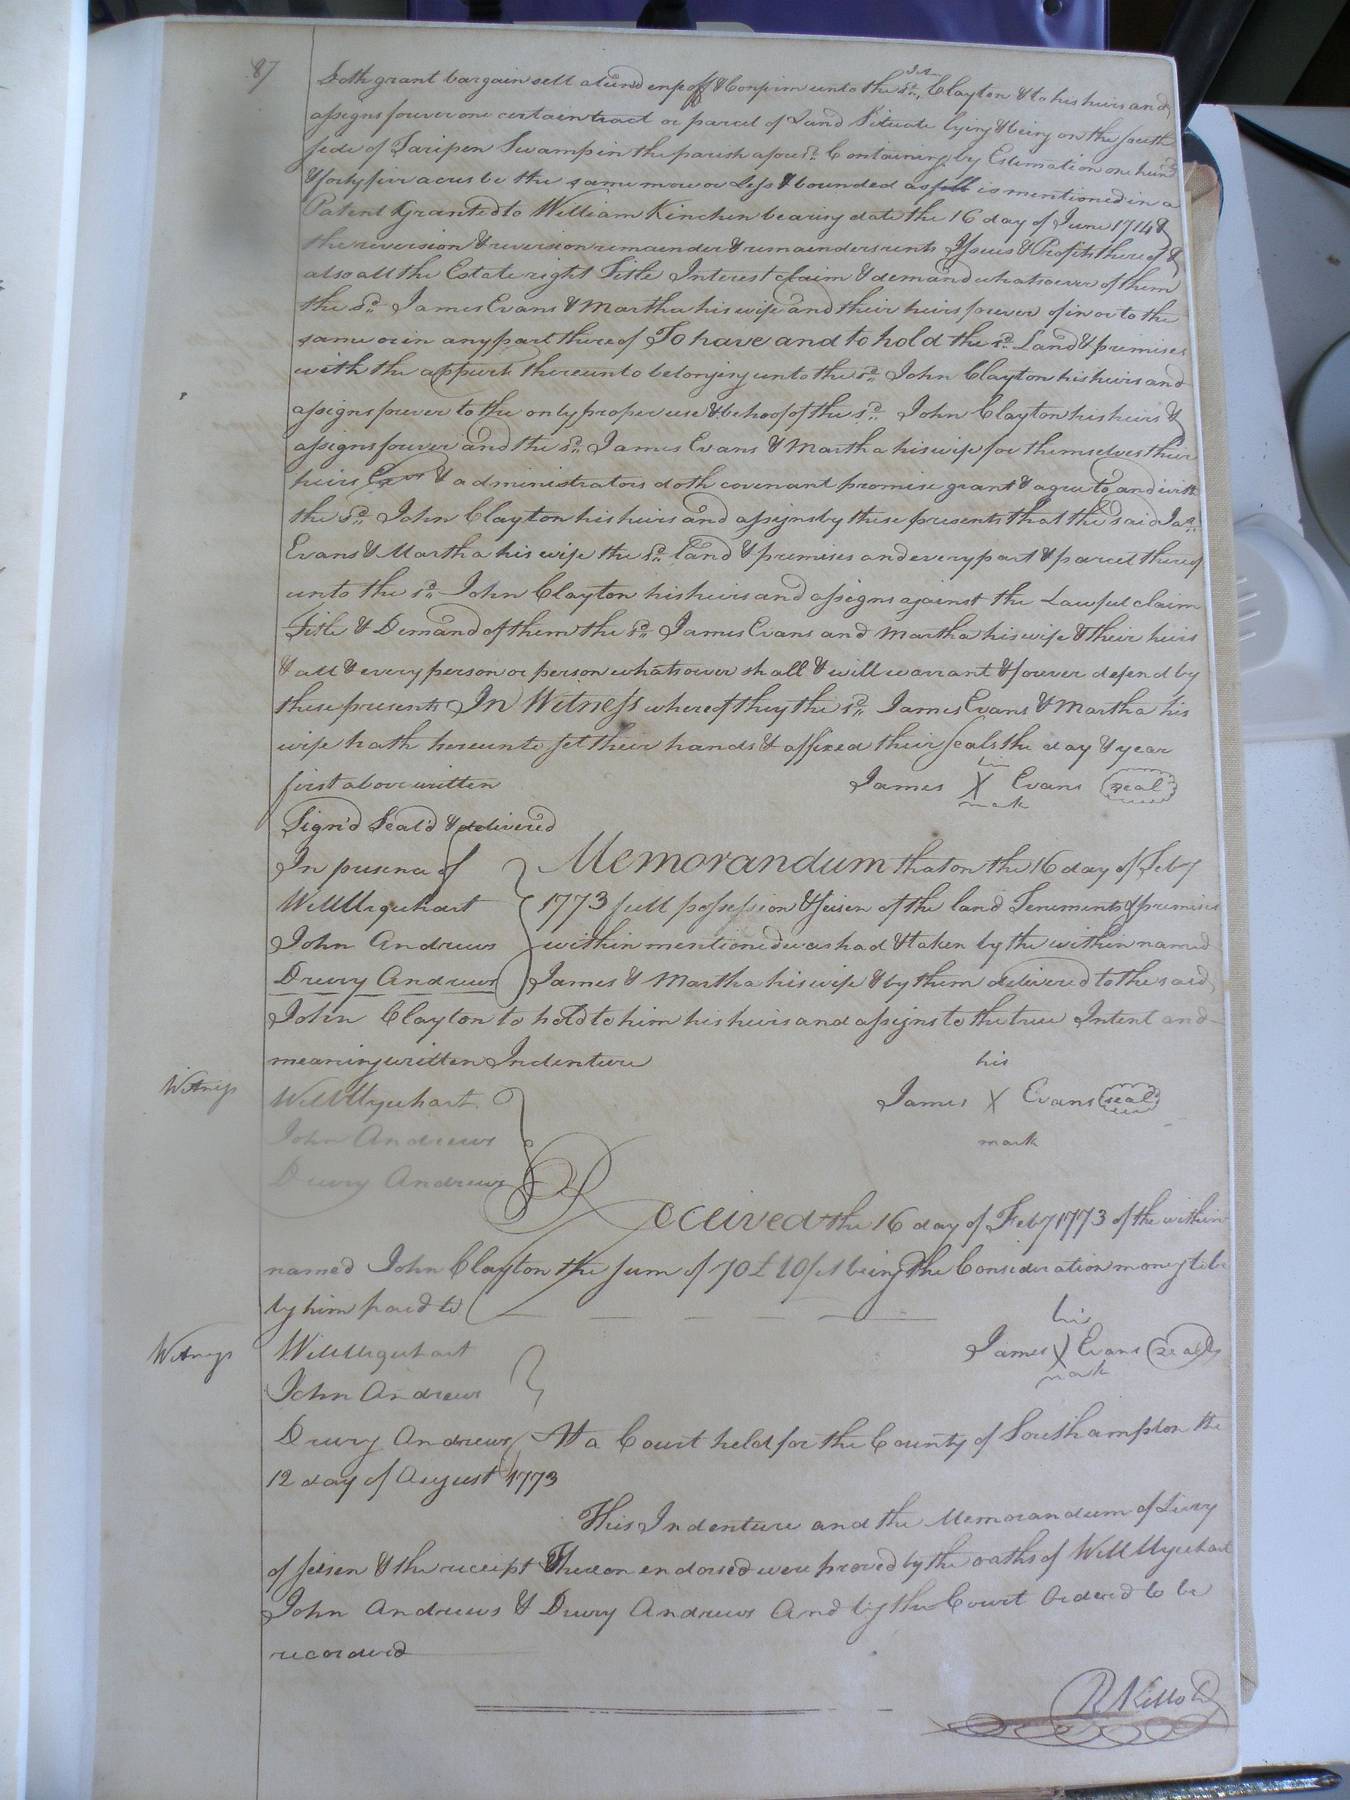 87
Doth grant bargain sell alien enfeoff & Confirm unto the sd. Jn Clayton & to his heirs and
assigns forever one certain tract or parcel of Land Situate lying & being on the south
side of Swamp in the parish aforesd. Containing by Estimation one hund
& forty five acres be the same more or Less & bounded as foll is mentioned in a
Patent Granted to William Kinchen bearing date the 16 day of June 1714 &
the reversion & reversion remainder & remainders rents Issues & Profits thereof &
also all the Estate right Title Interest claim & demand whatsoever of them
the sd. James Evans & Martha his wife and their heirs forever of in or to the
same or in any part thereof To have and to hold the sd. Land & premises
with the appurts thereunto belonging unto the sd. John Clayton his heirs and
assigns forever to the only proper use & behoof of the sd. John Clayton his heirs &
assigns forever and the sd. James Evans & Martha his wife for themselves their
heirs Exrs & administrators doth covenant promise grant & agree to and with
the sd. John Clayton his heirs and assigns by these presents that the said Jas.
Evans & Martha his wife the sd. land & premises and every part & parcel thereof
unto the sd. John Clayton his heirs and assigns against the Lawful claim
Title & Demand of them the sd. James Evans and Martha his wife & their heirs
& all & every person or person whatsover shall & will warrant & forever defend by
these presents In Witness whereof they the sd. James Evans & Martha his
wife hath hereunto set their hands & affixed their seals the day & year
first above written James his X mark Evans seal
Sign'd Seal'd & delivered
In presence of Memorandum that on the 16 day of Feby
Will Urquhart 1773 full possession & seisen of the land Tenements & premises
John Andrews within mentioned was had & taken by the within named
Drury Andrews James & Martha his wife & by them delivered to the said
John Clayton to hold to him his heirs and assigns to the true Intent and
meaning written Indenture his
Witness Will Urquhart James X Evans seal
John Andrews mark
Drury Andrews
Received the 16 day of Feby 1773 of the within
named John Clayton the sum of 70£ 10/ being the Consideration money to be
by him paid to his
Witness Will Urquhart James X Evans seal
John Andrews mark
Drury Andrews At a Court held for the County of Southampton the
12 day of August 1773
This Indenture and the Memorandum of Livry
of seisen & the receipt Thereon endorsed were proved by the oaths of Will Urquhart
John Andrews & Drury Andrews And by the Court Ordered to be
recorded
R Kello